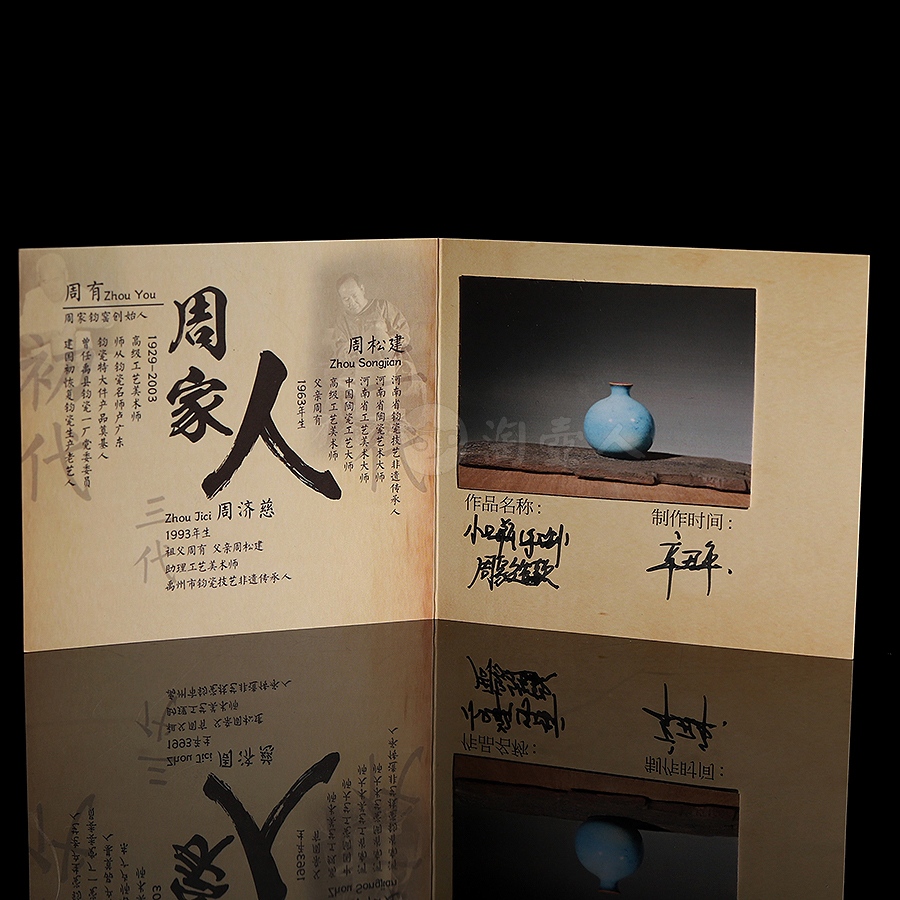 周有 Zhou You
周家钧窑创始人
1929-2003
高级工艺美术师
师从钧瓷名师卢广东
钧瓷特大件产品奠基人
曾任禹县钧瓷一厂党委委员
建国初恢复钧瓷生产老艺人
初代
周家人
周松建
Zhou Songjian
河南省钧瓷技艺非遗传承人
河南省陶瓷艺术大师
河南省工艺美术大师
中国陶瓷工艺大师
高级工艺美术师
父亲周有
1963年生
二代
三代
Zhou Jici 周济慈
1993年生
祖父周有 父亲周松建
助理工艺美术师
禹州市钧瓷技艺非遗传承人
淘壶人
作品名称:
制作时间:
辛丑年.